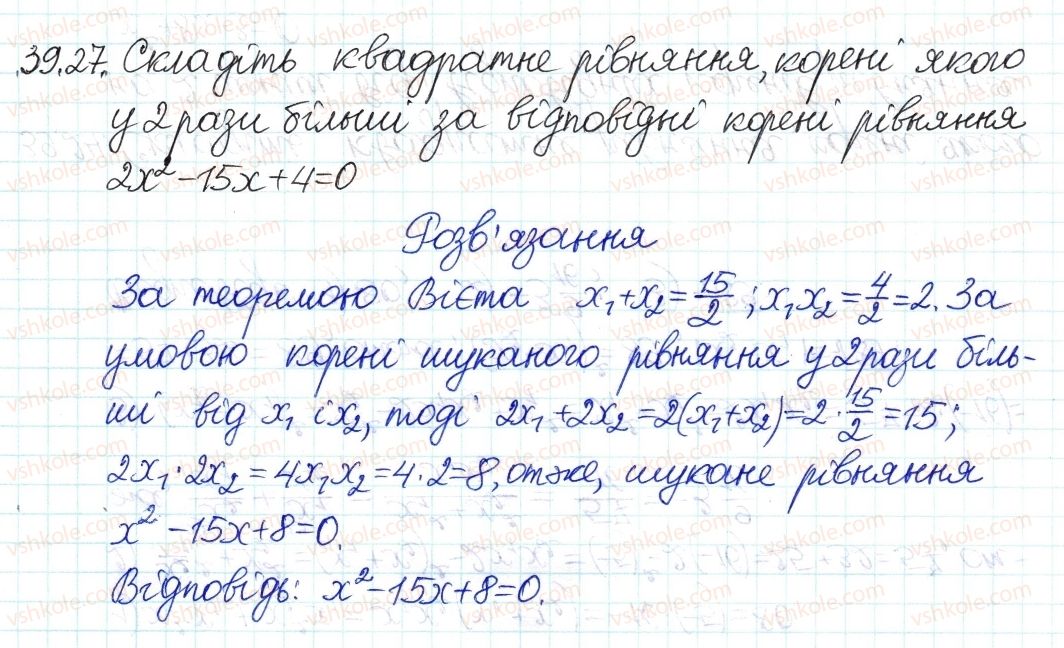 39.27. Складіть квадратне рівняння, корені якого
у 2 рази більші за відповідні корені рівняння
2x² - 15x + 4 = 0
Розв'язання
За теоремою Вієта x₁ + x₂ = 15/2 ; x₁x₂ = 4/2 = 2. За
умовою корені шуканого рівняння у 2 рази біль-
ші від x₁ і x₂, тоді 2x₁ + 2x₂ = 2(x₁ + x₂) = 2 · 15/2 = 15;
2x₁ · 2x₂ = 4x₁x₂ = 4 · 2 = 8, отже, шукане рівняння
x² - 15x + 8 = 0.
Відповідь: x² - 15x + 8 = 0.